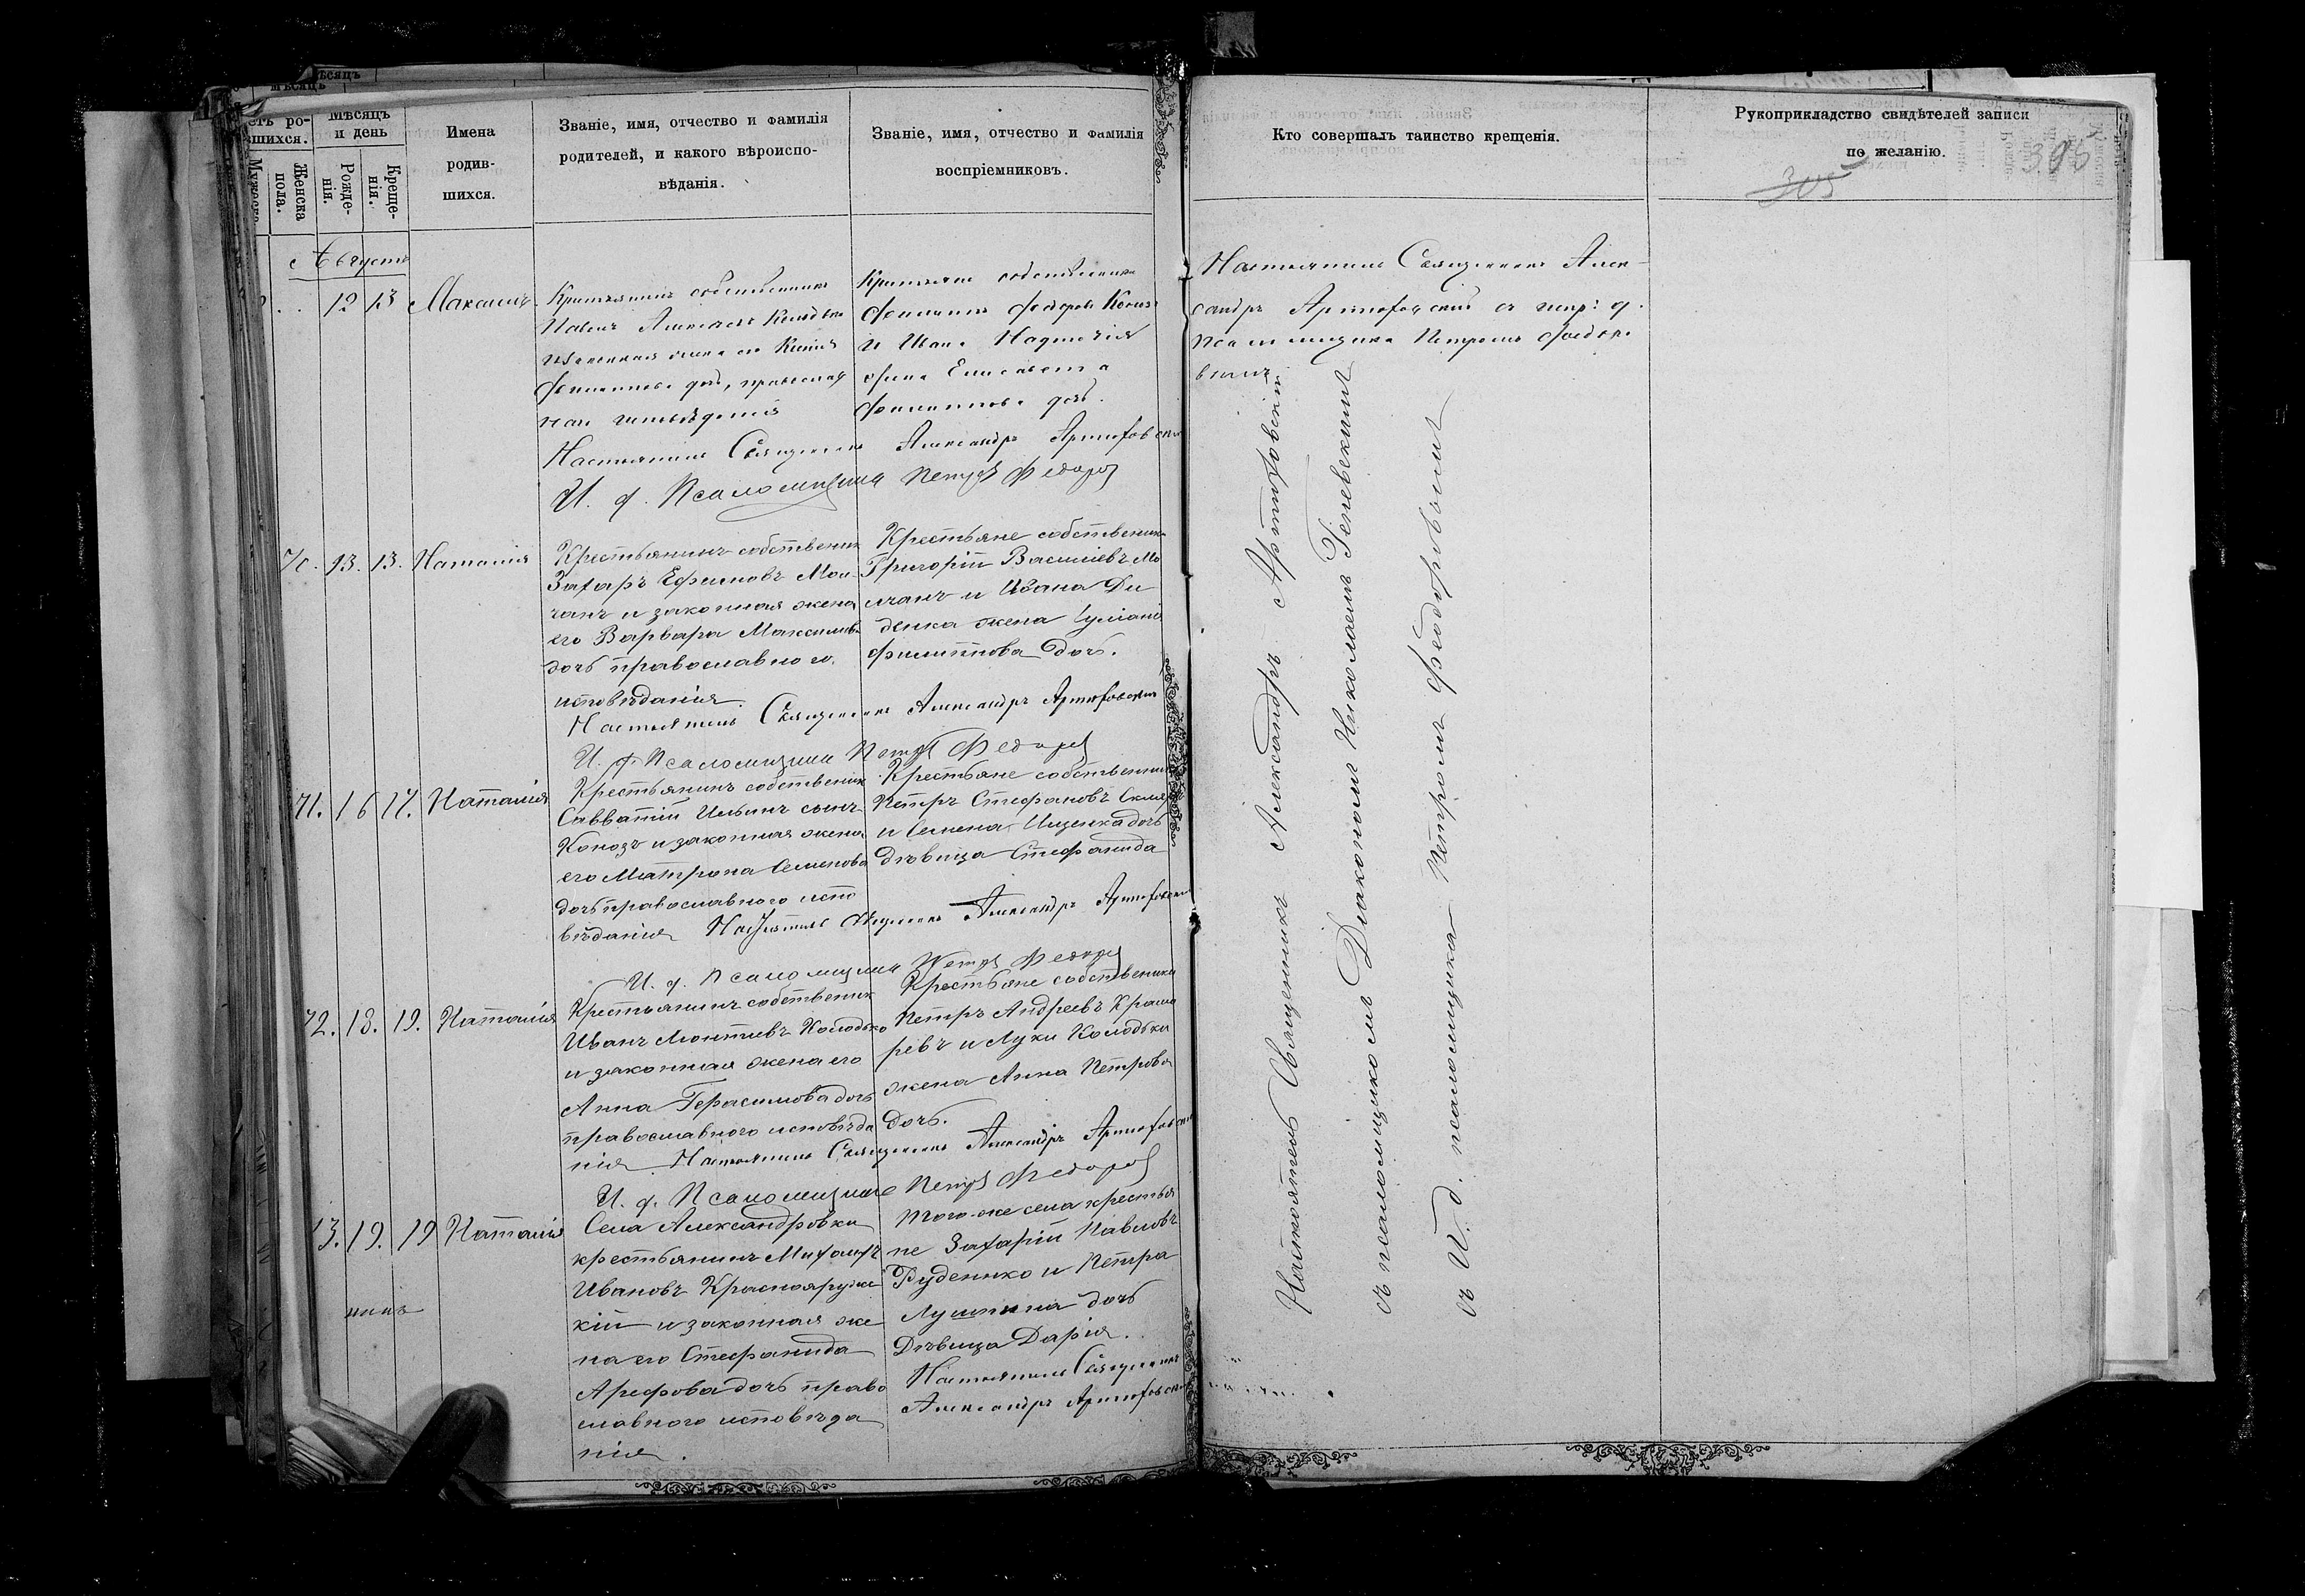 Мѣсяцъ
и день
Имена
родив-
шихся.
Женска
пола.
Рожде-
нія.
Креще-
нія.
Званіе, имя, отчество и фамилія
родителей, и какого вѣроиспо-
вѣданія.
Званіе, имя, отчество и фамилія
воспріемниковъ.
Кто совершалъ таинство крещенія.
Рукоприкладство свидѣтелей записи
по желанію.
305
Августъ
12 13
Крестьянинъ собственникъ
Павелъ
православ
наго исповѣданія
Крестьяне собственники
и Ивана
жена Елисавета
Филиппова дочь.
Настоятель Священникъ Алек-
сандръ Артюховскій съ испр: д.
псаломщика Петромъ Федоро
вымъ.
Настоятель Священникъ Александръ Артюховскій
И. д. Псаломщика Петръ Федоровъ
70. 13. 13. Наталія
Крестьянинъ собственник
Захаръ Ефимовъ Мол-
чанъ и законная жена
его Варвара Максимова
дочь православного
исповѣданія.
Крестьяне собственники
Григорій Василіевъ Мо
лчанъ и Ивана Ди
денка жена Іуліанія
Филиппова дочь.
Настоятель Священникъ Александръ Артюховскій
И. д. Псаломщика Петръ Федоровъ
71. 16 17. Наталія
Крестьянинъ собственник
Савватій Ильинъ сынъ
Конозъ и законная жена
его Матрона Семенова
дочь православного испо
вѣданія
Крестьяне собственники
Петръ Стефановъ
и Семена Ищенка дочь
дѣвица Стефанида
Настоятель Священникъ Александръ Артюховскій
И. д. Псаломщика Петръ Федоровъ
72. 18. 19. Наталія
Крестьянинъ собственник
Иванъ Леонтіевъ Колодько
и законная жена его
Анна Герасимова дочь
православного исповѣда
нія
Крестьяне собственики
Петръ Андреевъ Крама
ревъ и Луки Колодьки
жена Анна Петрова
дочь.
Настоятель Священникъ Александръ Артюховскій
И. д. Псаломщика Петръ Федоровъ
73. 19. 19 Наталія
Села Александровки
крестьянинъ Михаилъ
Ивановъ Краснояружс
кій и законная же
на его Стефанида
Арефова дочь право
славного исповѣда
нія.
Того-же села крестья
не Захарій Павловъ
Руденко и Петра
дочь
дѣвица Дарія.
Настоятель Священникъ
Александръ Артюховскій
Настоятель Священникъ Александръ Артюховскій
съ псаломщикомъ Діакономъ Николаемъ
съ И. д. псаломщика Петромъ Феодоровымъ